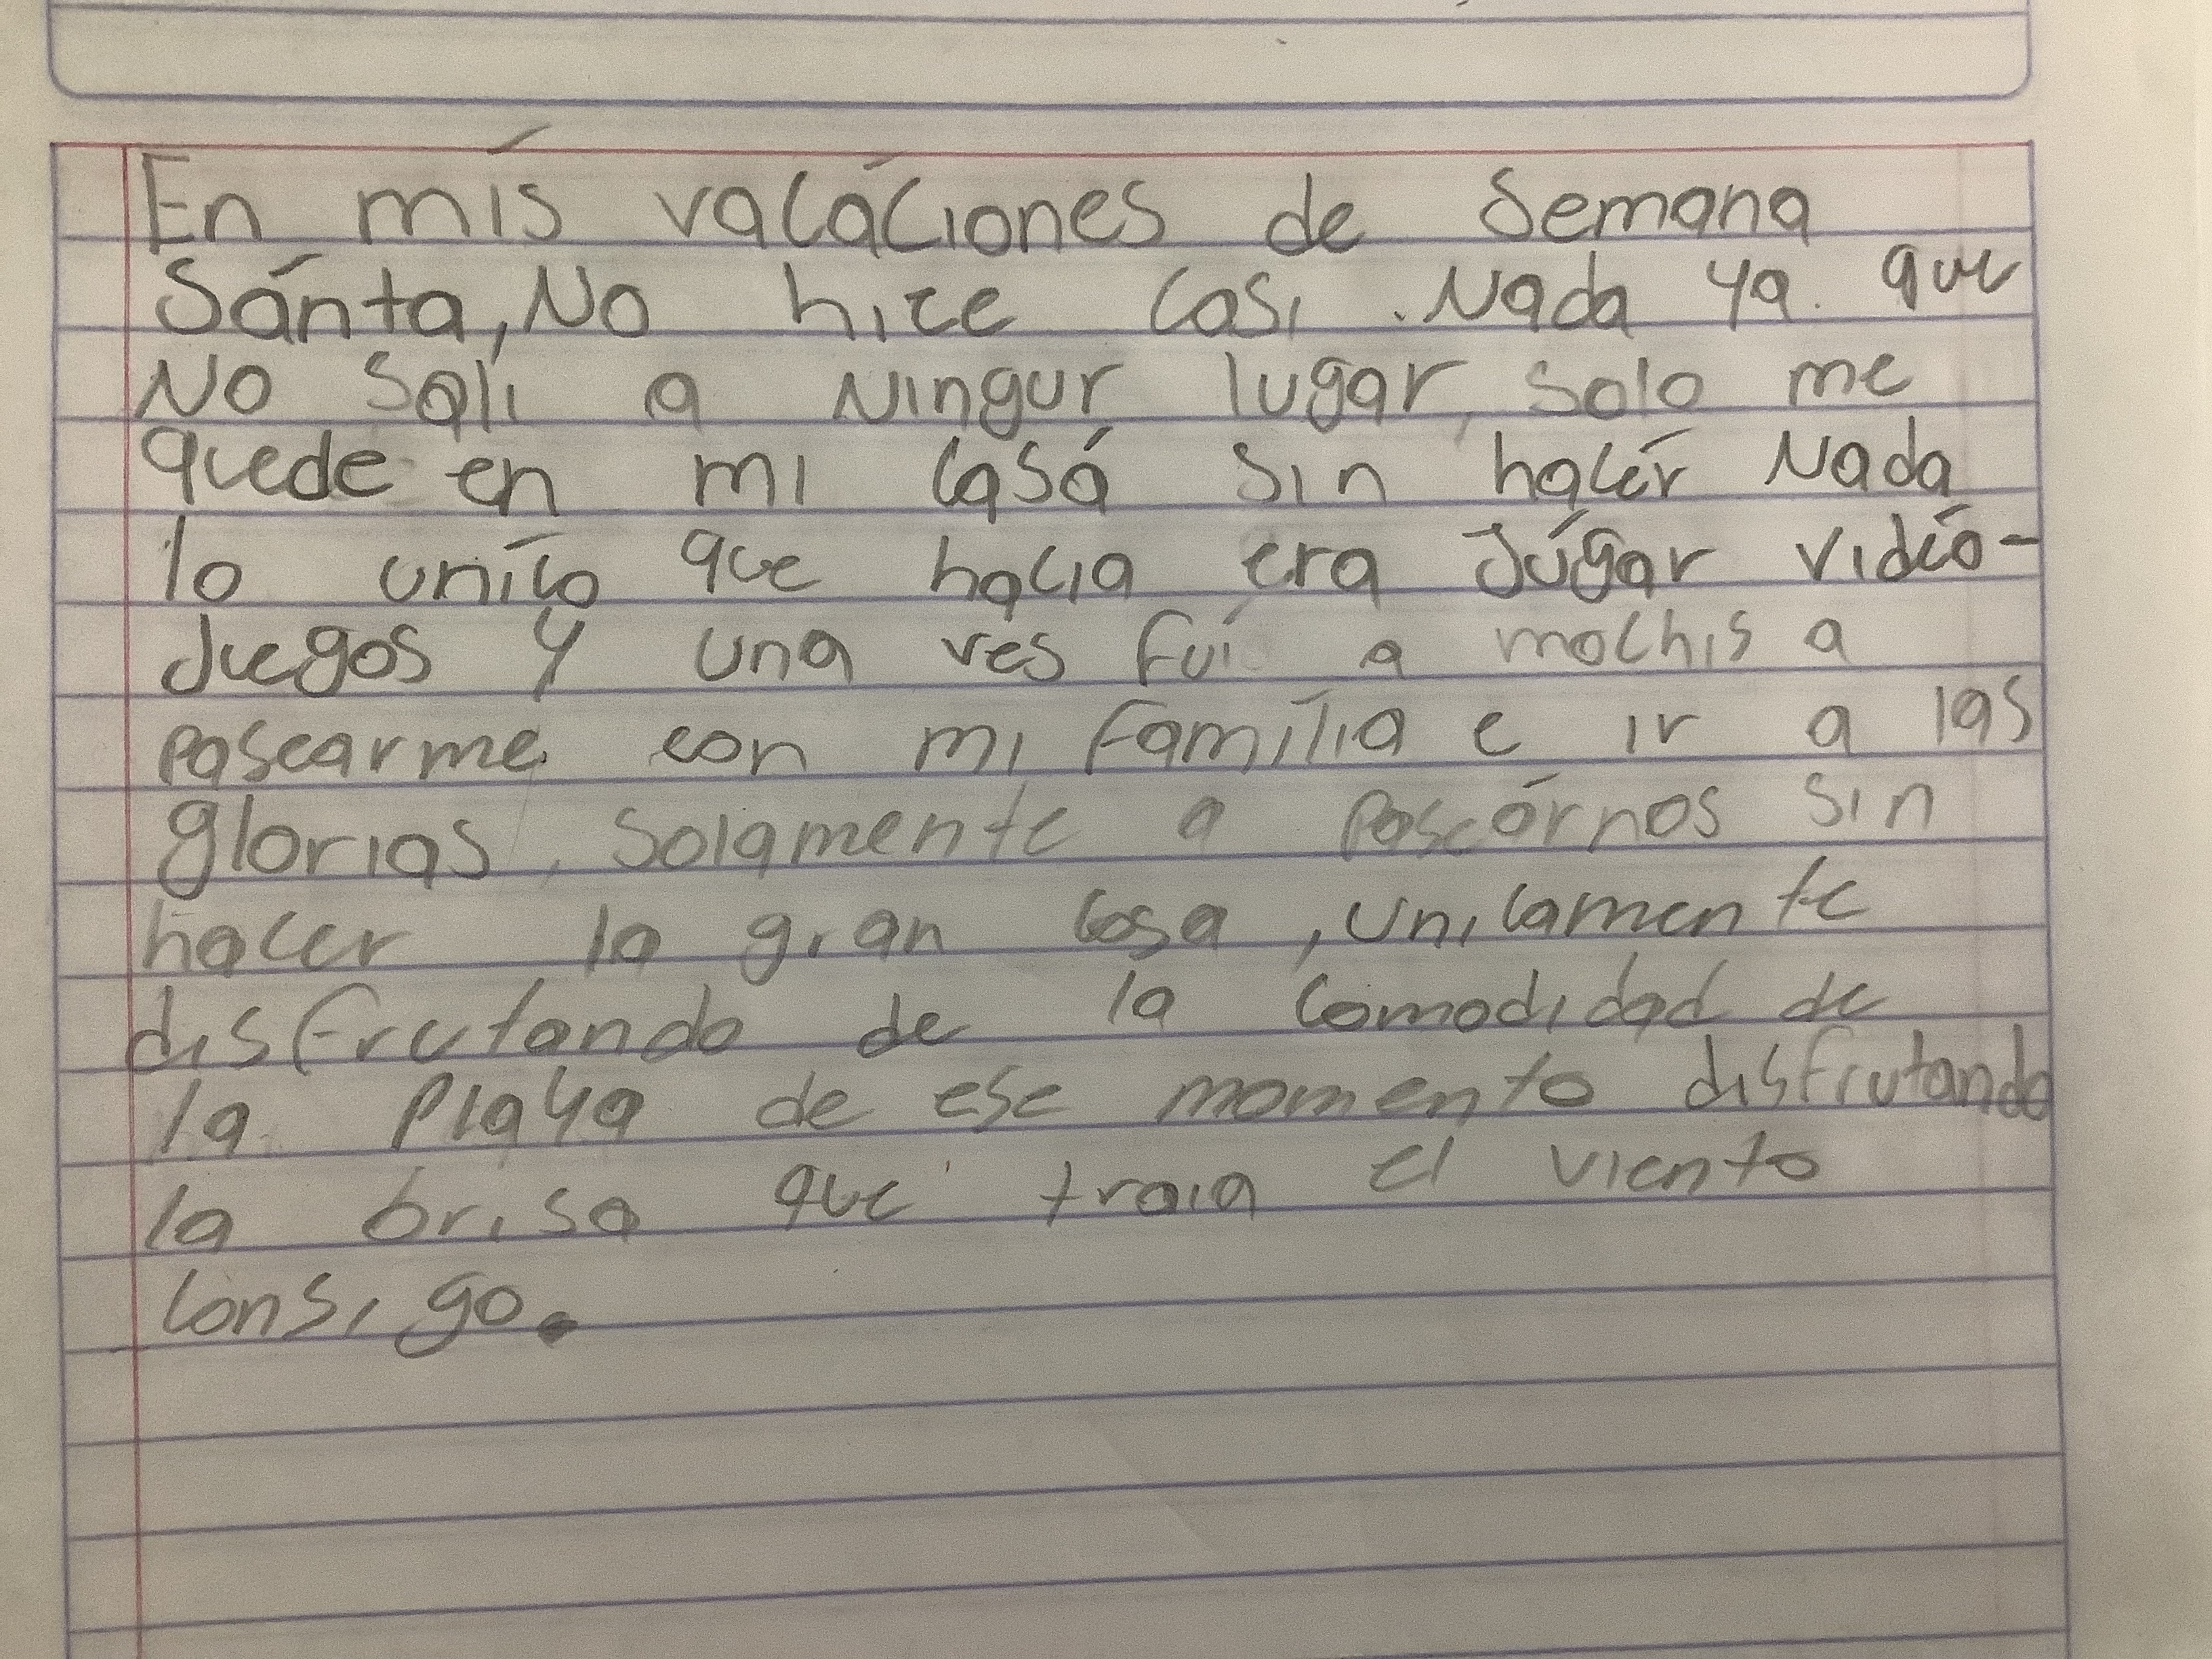 En mís vacáciones de Semana
Sánta, No hice casi. Nada ya que
No sali a Ningur lugar, solo me
quede en mi casá sin hacér Nada
lo uníco que hacia era Júgar vidéo-
Juegos y una ves fuí a mochis a
pasearme con mi família e ir a las
glorias, solamente a paseárnos sin
hacer la gran cosa, unicamente
disfrutando de la comodidad de
la Playa de ese momento disfrutando
la brisa que traia el viento
consigo.